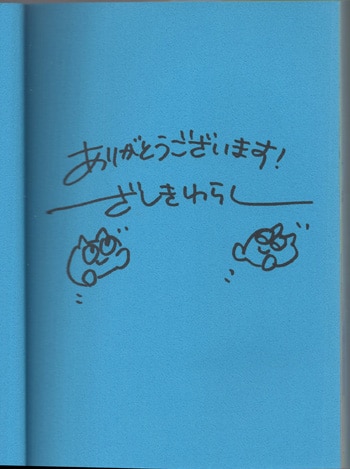 ありがとうございます!
ざしきわらし